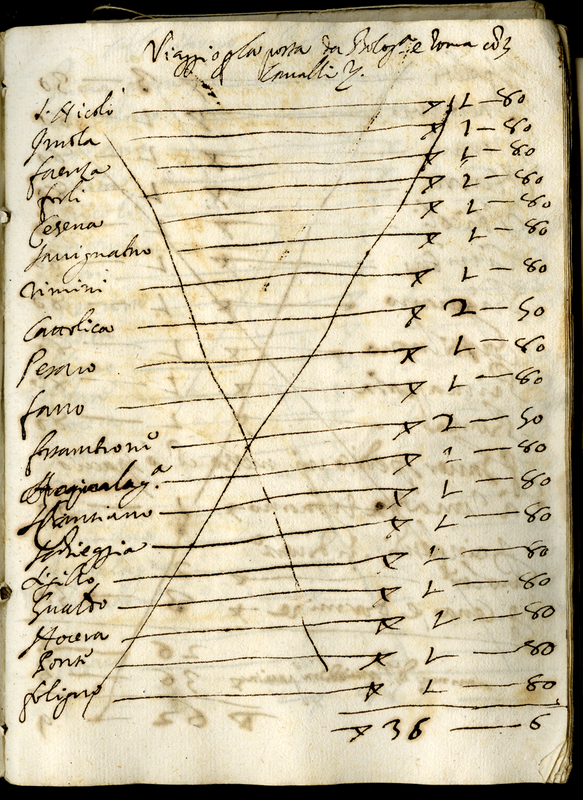 Viaggio p la posta da Bologa e Roma con
Cavalli 2.
S. Nicolò x 1 — 80
Imola x 1 — 80
faenza x 1 — 80
forlì x 1 — 80
Cesena x 1 — 80
Savignano x 1 — 80
rimini x 1 — 80
Cattolica x 2 — 50
Pesaro x 1 — 80
fano x 1 — 80
fossambrone x 2 — 50
Acqualagna x 1 — 80
Cantiano x 1 — 80
Schieggia x 1 — 80
Sigillo x 1 — 80
Gualdo x 1 — 80
Nocera x 1 — 80
Ponte x 1 — 80
foligno x 1 — 80
x 36 — 6